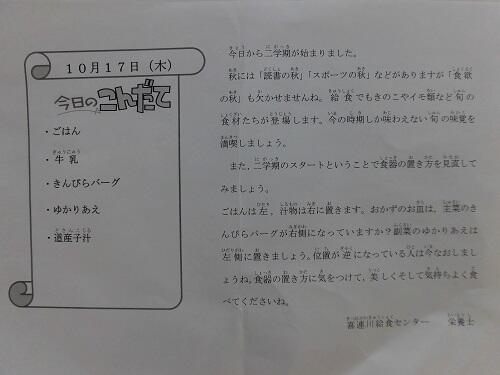 10月17日（木）
今日のこんだて
・ごはん
・牛乳
・きんぴらバーグ
・ゆかりあえ
・道産子汁
今日から二学期が始まりました。
秋には「読書の秋」「スポーツの秋」などがありますが「食欲
の秋」も欠かせませんね。給食でもきのこやイモ類など旬の
食材たちが登場します。今の時期しか味わえない旬の味覚を
満喫しましょう。
また、二学期のスタートということで食器の置き方を見直して
みましょう。
ごはんは左、汁物は右に置きます。おかずのお皿は、主菜のき
んぴらバーグが右側になっていますか？副菜のゆかりあえは
左側に置きましょう。位置が逆になっている人は今なおしまし
ょうね。食器の置き方に気をつけて、美しくそして気持ちよく食
べてくださいね。
喜連川給食センター　栄養士